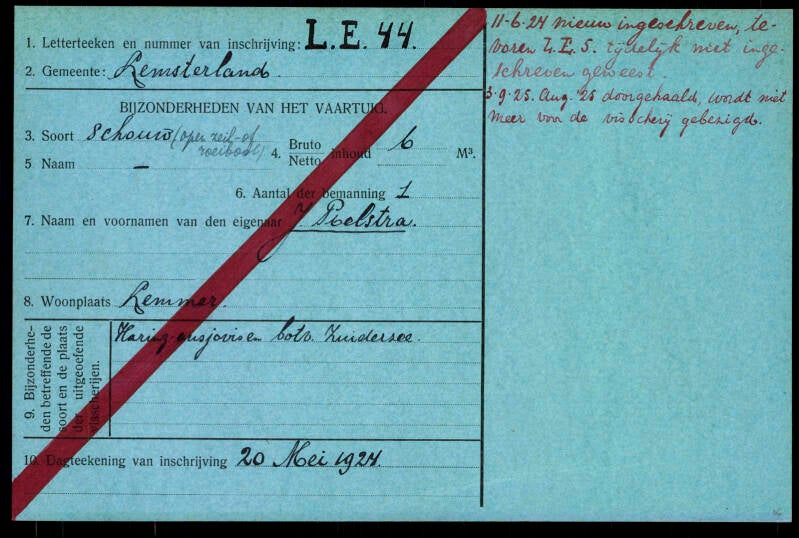 1. Letterteeken en nummer van inschrijving: L.E. 44.
2. Gemeente: Lemsterland.
BIJZONDERHEDEN VAN HET VAARTUIG.
3. Soort schouw (open zeil- of
roeiboot)
4. Bruto
Netto inhoud 6 M³.
5 Naam —
6. Aantal der bemanning 1
7. Naam en voornamen van den eigenaar J Poelstra.
8. Woonplaats Lemmer.
9. Bijzonderhe-
den betreffende de
soort en de plaats
der uitgeoefende
visscherijen.
Haring- ansjovis en botv. Zuidersee.
10. Dagteekening van inschrijving 20 Mei 1924.
11-6-24 nieuw ingeschreven, te-
voren L.E. 5. tijdelijk niet inge-
schreven geweest.
3.9.25. Aug. '25 doorgehaald, wordt niet
meer voor de visscherij gebezigd.